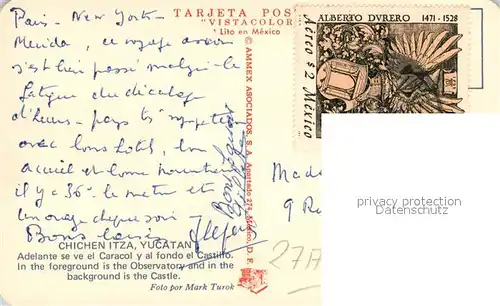 TARJETA POS
"VISTACOLOR
Lito en México
Paris - New York -
Merida, ce voyage avion
s'est bien passé malgré la
fatigue du décalage
d'heures - pays très sympathique
avec bons hotel, bon
accueil et bonne nourriture
il y a 36° le matin et
un orage depuis soir
Bons baisers
© AMMEX ASOCIADOS, S. A. Apartado 274, México, D. F.
CHICHEN ITZA, YUCATAN
Adelante se ve el Caracol y al fondo el Castillo.
In the foreground is the Observatory and in the
background is the Castle.
Foto por Mark Turok
ALBERTO DVRERO 1471-1528
Aéreo $ 2 México
Mada
9 R
277
privacy protection